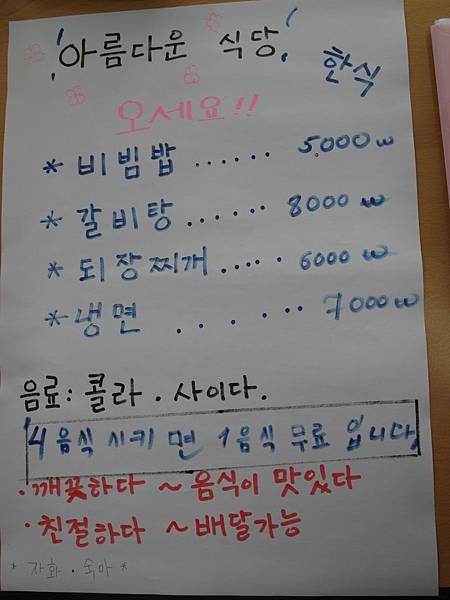 '아름다운 식당'
한식
오세요!!
* 비빔밥 ...... 5.000 w
* 갈비탕 ...... 8000 w
* 되장찌개 ..... 6000 w
* 냉면 . . . . ... 7000 w
음료: 콜라 . 사이다.
'4 음식 시키 면 1음식 무료 입니다,
· 깨꽃하다 ~ 음식이 맛있다
· 친절하다 ~ 배달가능
* 자화 · 숙마 *